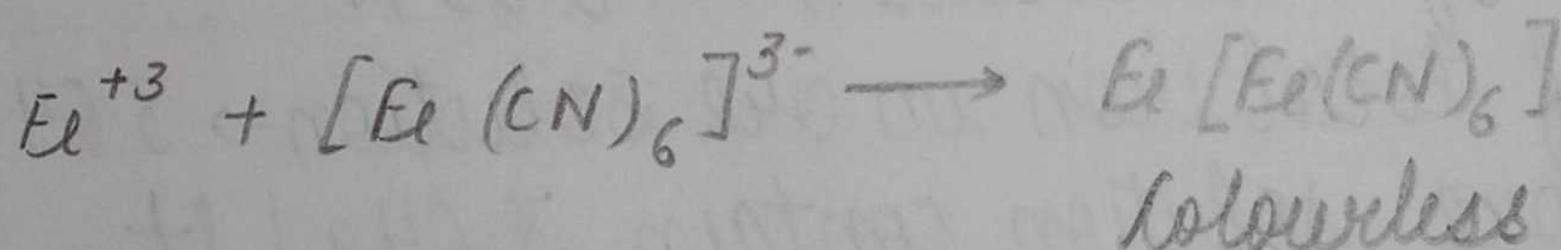 Fe⁺³ + [Fe (CN)₆]³⁻ ⟶ Fe [Fe(CN)₆]
Colourless